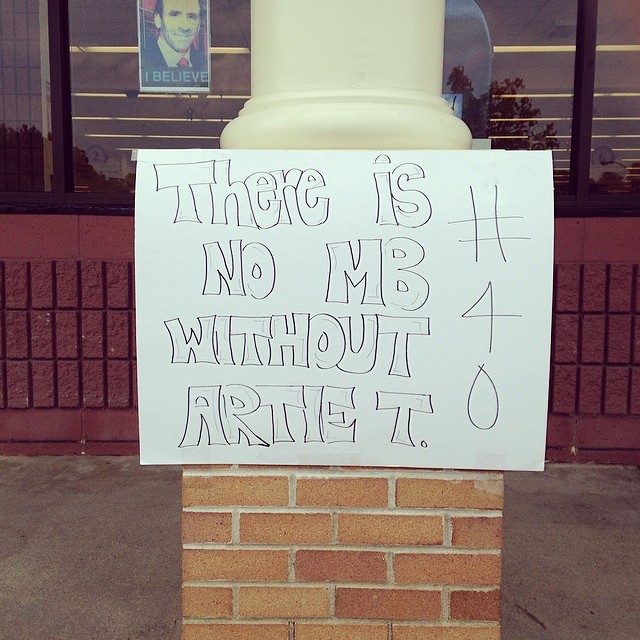 I BELIEVE
THeRe iS
NO MB
WITHOUT
ARTIE T.
#
4
0